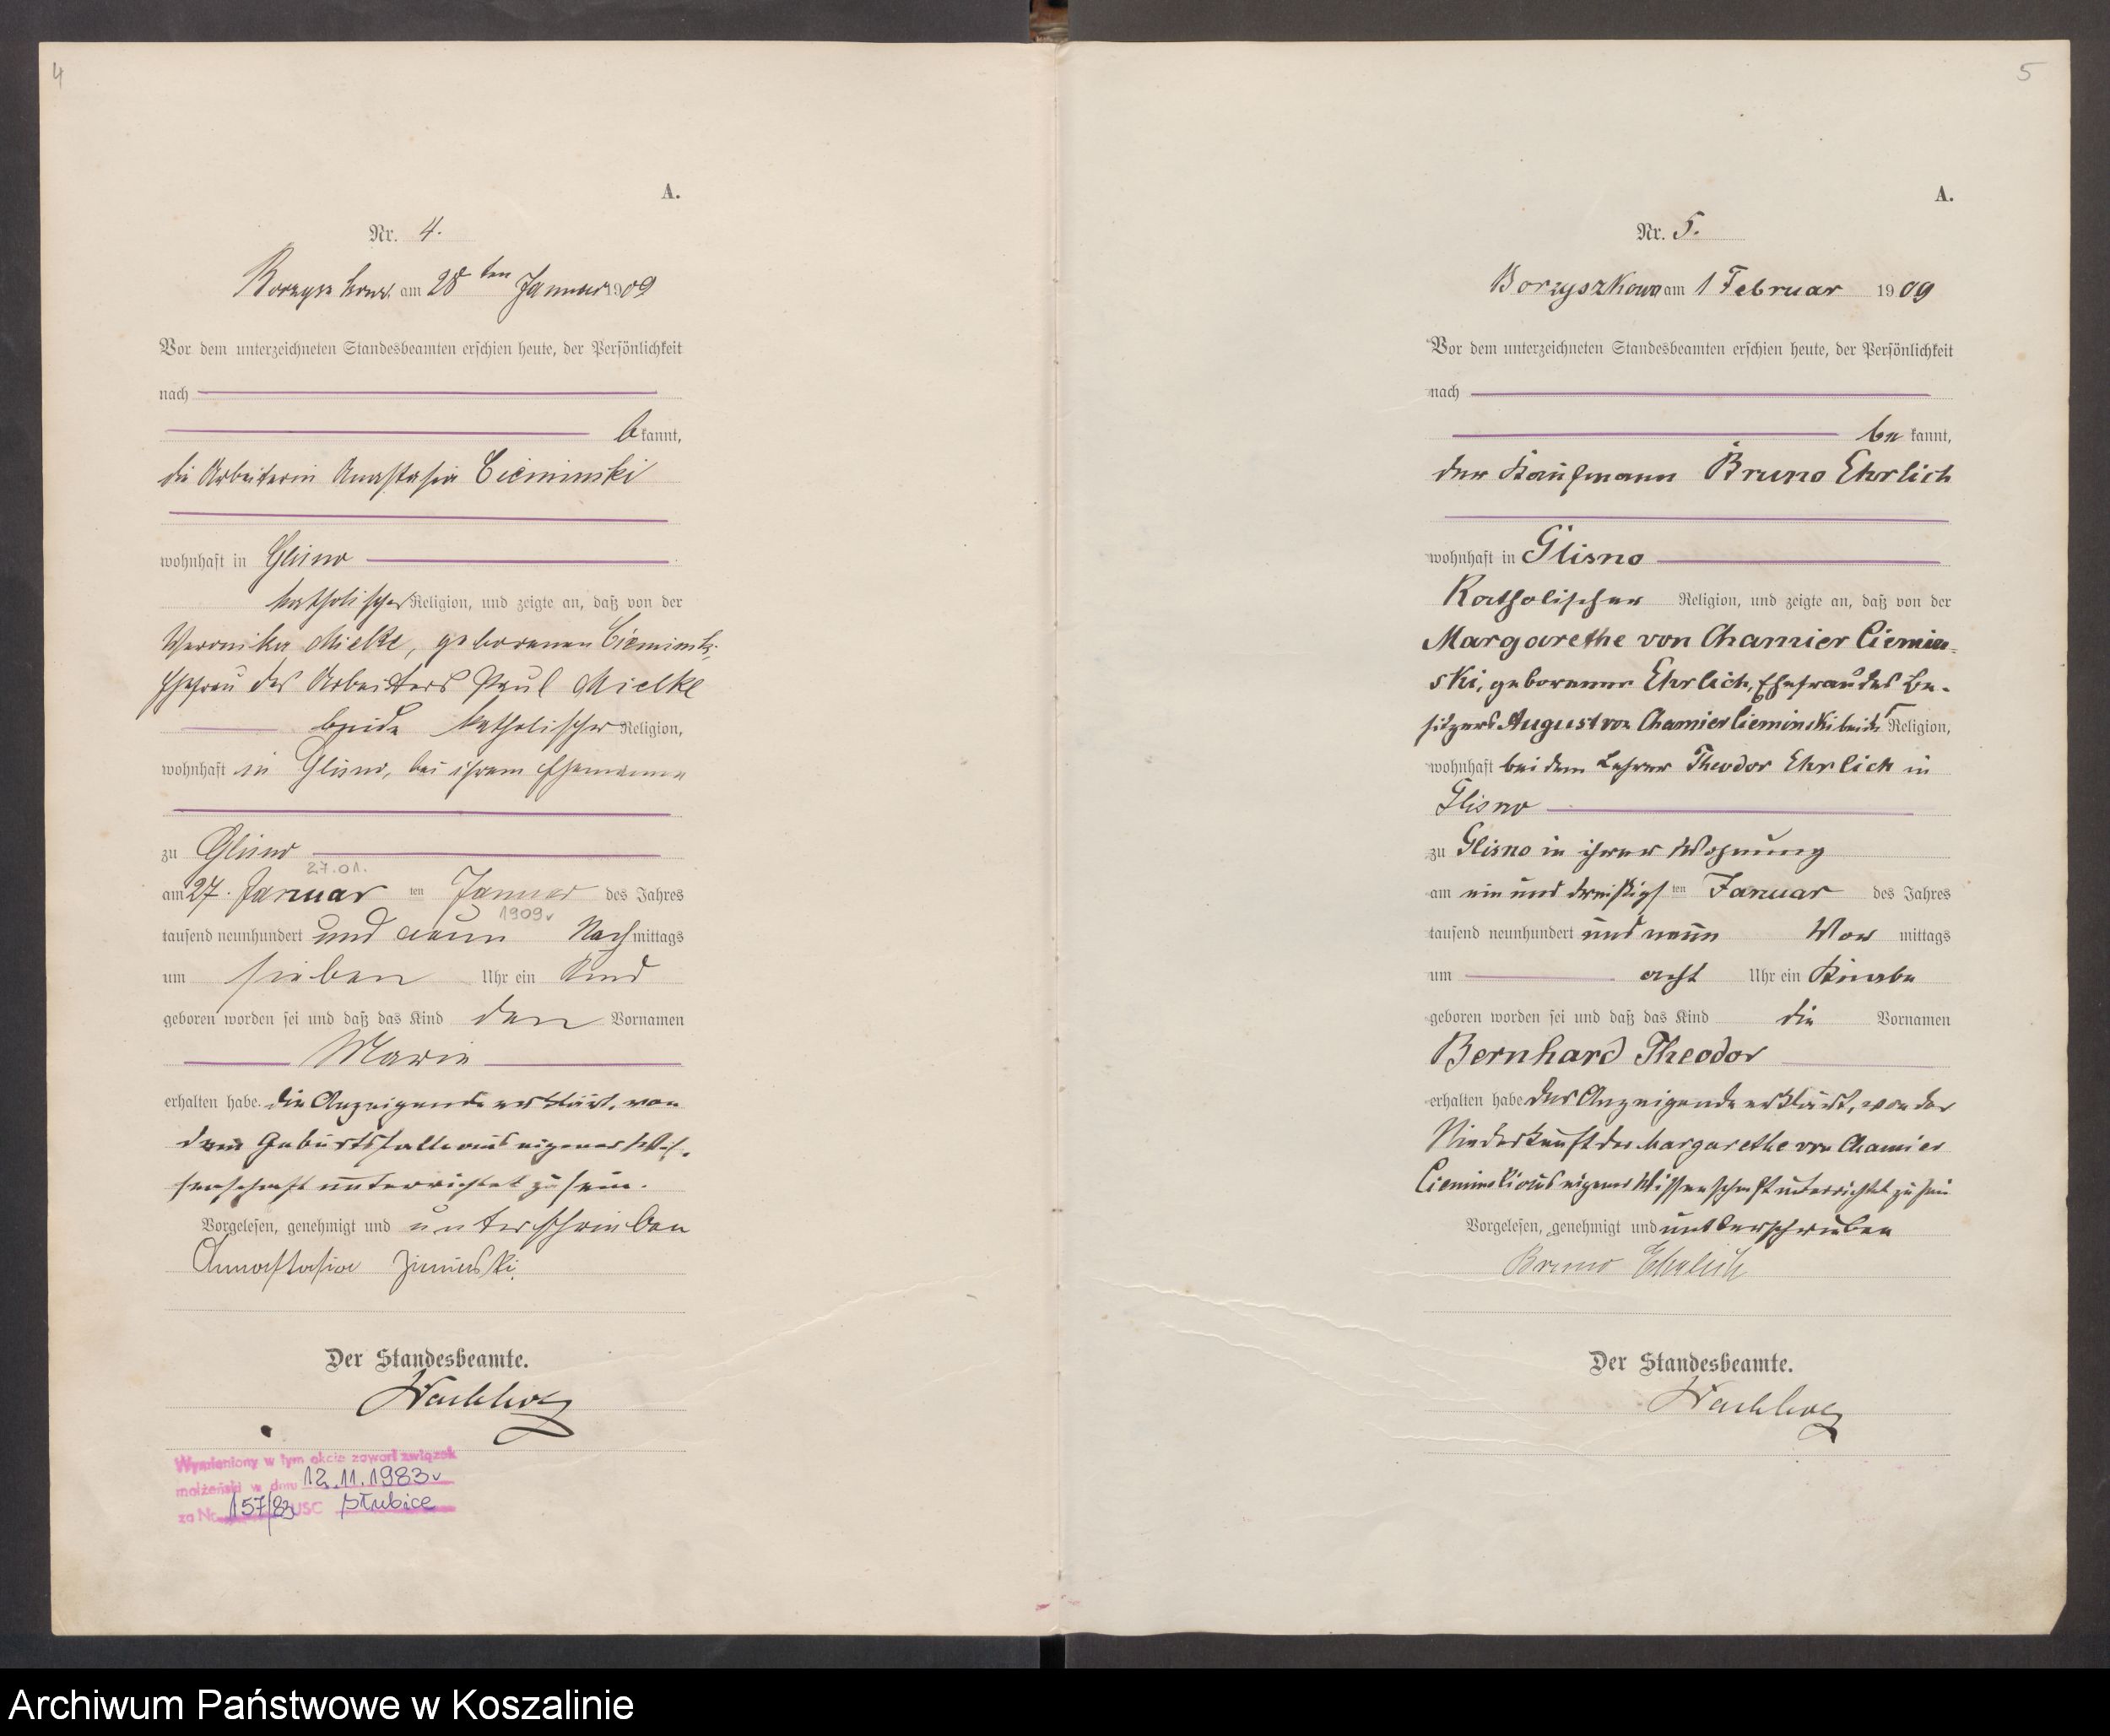 4
A.
Nr. 4.
Borzyszkowo am 28 ten Januar 1909
Vor dem unterzeichneten Standesbeamten erschien heute, der Persönlichkeit
nach
b kannt,
die Arbeiterin Anastasia Cieminski
wohnhaft in Glisno
katholischer Religion, und zeigte an, daß von der
Veronika Mielke, geborenen Cieminski
Ehefrau des Arbeiters Paul Mielke
beide katholischer Religion,
wohnhaft in Glisno, bei ihrem Ehemanne
zu Glisno
27.01.
am 27. Januar ten Januar des Jahres
1909
tausend neunhundert und neun Nach mittags
um sieben Uhr ein Kind
geboren worden sei und daß das Kind den Vornamen
Marie
erhalten habe. die Anzeigende erklärt, von
dem Geburtsfalle aus eigener Wis-
senschaft unterrichtet zu sein.
Vorgelesen, genehmigt und unterschrieben
Annastasia
Der Standesbeamte.
Wachholz
Wymieniony w tym akcie zawarł związek
małżeński w dniu 12.11.1983
za Nr 157/83 USC Słubice
5
A.
Nr. 5.
Borzyszkowo am 1 Februar 1909
Vor dem unterzeichneten Standesbeamten erschien heute, der Persönlichkeit
nach
be kannt,
der Kaufmann Bruno Ehrlich
wohnhaft in Glisno
Katholischer Religion, und zeigte an, daß von der
Margarethe von Chamier Ciemin-
ski, geborener Ehrlich, Ehefrau des Be-
sitzers August von Chamier Cieminski beide Religion,
wohnhaft bei dem Lehrer Theodor Ehrlich in
Glisno
zu Glisno in ihrer Wohnung
am ein und dreißigs ten Januar des Jahres
tausend neunhundert und neun Vor mittags
um acht Uhr ein Knabe
geboren worden sei und daß das Kind die Vornamen
Bernhard Theodor
erhalten habe der Anzeigende erklärt, von der
Niederkunft der Margarethe von Chamier
Cieminski aus eigener Wissenschaft unterrichtet zu sein
Vorgelesen, genehmigt und unterschrieben
Bruno Ehrlich
Der Standesbeamte.
Wachholz
Archiwum Państwowe w Koszalinie